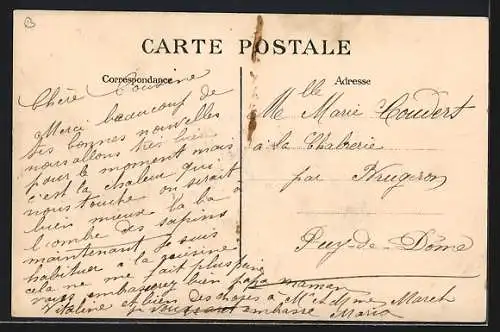 CARTE POSTALE
Correspondance
Adresse
Chère Cousine
Merci beaucoup de
tes bonnes nouvelles
nous allons très bien
pour le moment mais
c'est la chaleur qui
nous touche on serait
bien mieux la ba a
l'ombre des sapins
maintenant je suis
habituer a la cuisine
cela ne me fait plus rien
vous embrasserez bien papa maman
Vitaline et bien des choses a Mr et Mme March
embrasse Maria
Mlle Marie Coudert
à la Chabrerie
par Neugeron
Puy-de-Dôme